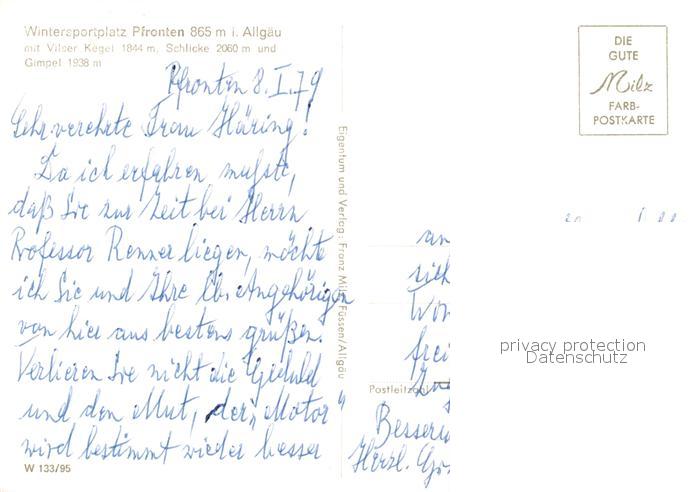 Wintersportplatz Pfronten 865 m i. Allgäu
mit Vilser Kegel 1844 m, Schlicke 2060 m und
Gimpel 1938 m
Pfronten 8.I.79
Sehr verehrte Frau Häring!
Da ich erfahren mußte,
daß Sie zur Zeit bei Herrn
Professor Renner liegen, möchte
ich Sie und Ihre lb. Angehörigen
von hier aus bestens grüßen.
Verlieren Sie nicht die Geduld
und den Mut, der „Motor"
wird bestimmt wieder besser
W 133/95
Eigentum und Verlag: Franz Milz Füssen/Allgäu
DIE
GUTE
Milz
FARB-
POSTKARTE
an
sich
frei
Postleitzahl
Besseru
Herzl. Gr
privacy protection
Datenschutz